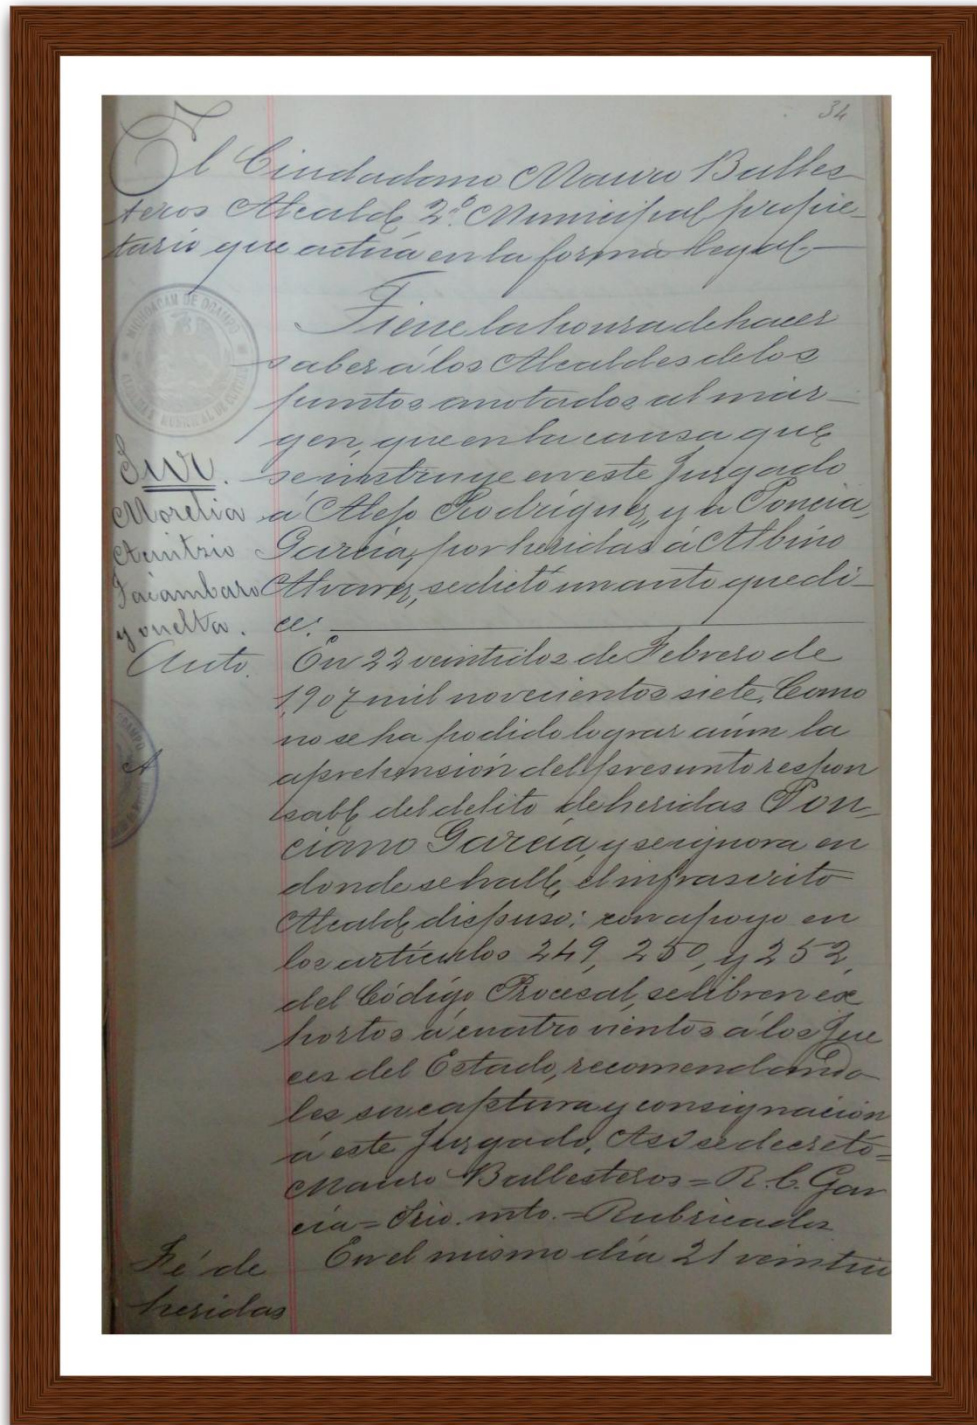 34
El Ciudadano Mauro Balles-
teros Alcalde 2º. Municipal propie-
tario que actúa en la forma legal.
Tiene la honra de hacer
saber á los Alcaldes de los
puntos anotados al már-
gen, que en la causa que
se instruye en este Juzgado
á Alejo Rodríguez, y á Poncia
García, por heridas á Albino
Alvarez, se dictó un auto que di-
ce.
MICHOACAN DE OCAMPO
MUNICIPAL DE
Sur.
Morelia
Acuitzio
Tacambaro
y vuelta.
Auto.
En 22 veintidos de Febrero de
1,907 mil novecientos siete. Como
no se ha podido lograr aúm la
aprehensión del presunto respon
sable del delito de heridas Pon-
ciano García, y se ignora en
donde se halle, el infrascrito
Alcalde dispuso: con apoyo en
los artículos 249, 250, y 252,
del Código Procesal, se libren ex
hortos á cuatro vientos á los Jue
ces del Estado, recomendando
les su captura y consignación
á este Juzgado. Así se decretó=
Mauro Ballesteros = R. C. Gar
cía = Srio. into. = Rubricados
Fé de
heridas
En el mismo día 21 veintiu